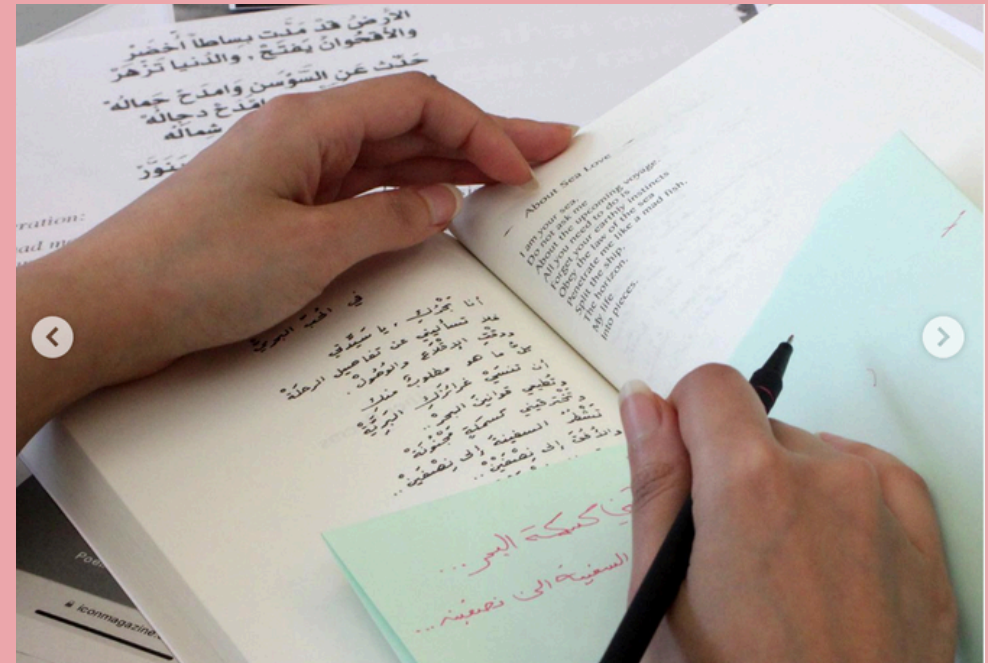 الأرضُ قَدْ مَدَّت بِساطاً أَخضَرْ
والأُقحُوانُ يَفتَحْ ، والدُنيا تَزْهَرْ
حَدِّث عَنِ السَّوْسَنِ وَامدَحْ جَمالُهْ
شِمالُه
eration:
About Sea Love
I am your sea.
Do not ask me
About the upcoming voyage.
All you need to do is
Forget your earthly instincts
Obey the law of the sea
Penetrate me like a mad fish.
Split the ship.
The horizon.
My life
Into pieces.
في الحب البحريّ
أنا بَحْرُكِ ، يا سيّدتي
فلا تسأليني عن تفاصيل الرحلةْ
ووقت الإقلاع والوصولْ.
كلُّ ما هو مطلوبٌ منكِ
أن تنسَيْ غرائزَكِ البَرّيَّةْ
وتُطيعي قوانينَ البحرْ..
وتخترقيني كسمكةٍ مجنونةْ
تشطُرُ السفينةَ إلى نِصْفَينْ..
والأُفُقَ إلى نِصْفَينْ..
كسمكة البحر ...
السفينة الى نصفين ...
iconmagazine.